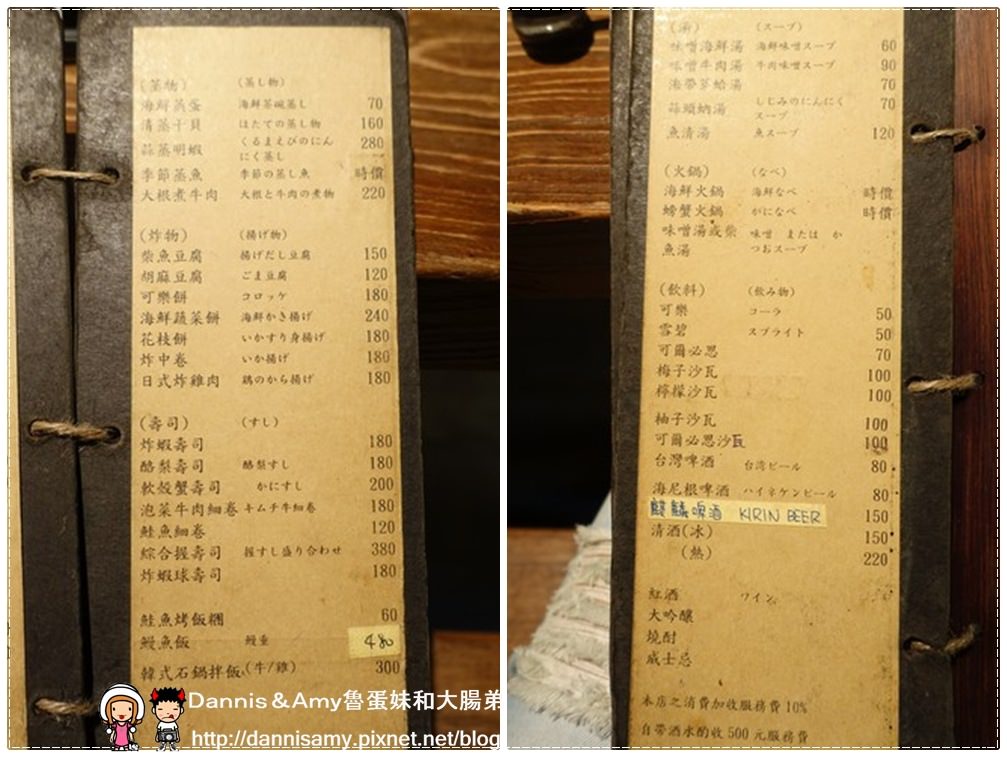 (蒸物) (蒸し物)
海鮮蒸蛋 海鮮茶碗蒸し 70
清蒸干貝 ほたての蒸し物 160
蒜蒸明蝦 くるまえびのにん
にく蒸し 280
季節蒸魚 季節の蒸し魚 時價
大根煮牛肉 大根と牛肉の煮物 220
(炸物) (揚げ物)
柴魚豆腐 揚げだし豆腐 150
胡麻豆腐 ごま豆腐 120
可樂餅 コロッケ 180
海鮮蔬菜餅 海鮮かき揚げ 240
花枝餅 いかすり身揚げ 180
炸中卷 いか揚げ 180
日式炸雞肉 鶏のから揚げ 180
(壽司) (すし)
炸蝦壽司 180
酪梨壽司 酪梨すし 180
軟殼蟹壽司 かにすし 200
泡菜牛肉細卷 キムチ牛細卷 180
鮭魚細卷 120
綜合握壽司 握すし盛り合わせ 380
炸蝦球壽司 180
鮭魚烤飯糰 60
鰻魚飯 鰻重 480
韓式石鍋拌飯(牛/雞) 300
Dannis＆Amy魯蛋妹和大腸弟
http://dannisamy.pixnet.net/blog
(湯) (スープ)
味噌海鮮湯 海鮮味噌スープ 60
味噌牛肉湯 牛肉味噌スープ 90
海帶芽蛤湯 70
蒜頭蚋湯 しじみのにんにく
スープ 70
魚清湯 魚スープ 120
(火鍋) (なべ)
海鮮火鍋 海鮮なべ 時價
螃蟹火鍋 かになべ 時價
味噌湯或柴 味噌 または か
魚湯 つおスープ
(飲料) (飲み物)
可樂 コーラ 50
雪碧 スプライト 50
可爾必思 70
梅子沙瓦 100
檸檬沙瓦 100
柚子沙瓦 100
可爾必思沙瓦 100
台灣啤酒 台湾ビール 80
海尼根啤酒 ハイネケンビール 80
麒麟啤酒 KIRIN BEER 150
清酒(冰) 150
(熱) 220
紅酒 ワイン
大吟釀
燒酎
威士忌
本店之消費加收服務費10%
自帶酒水酌收500元服務費